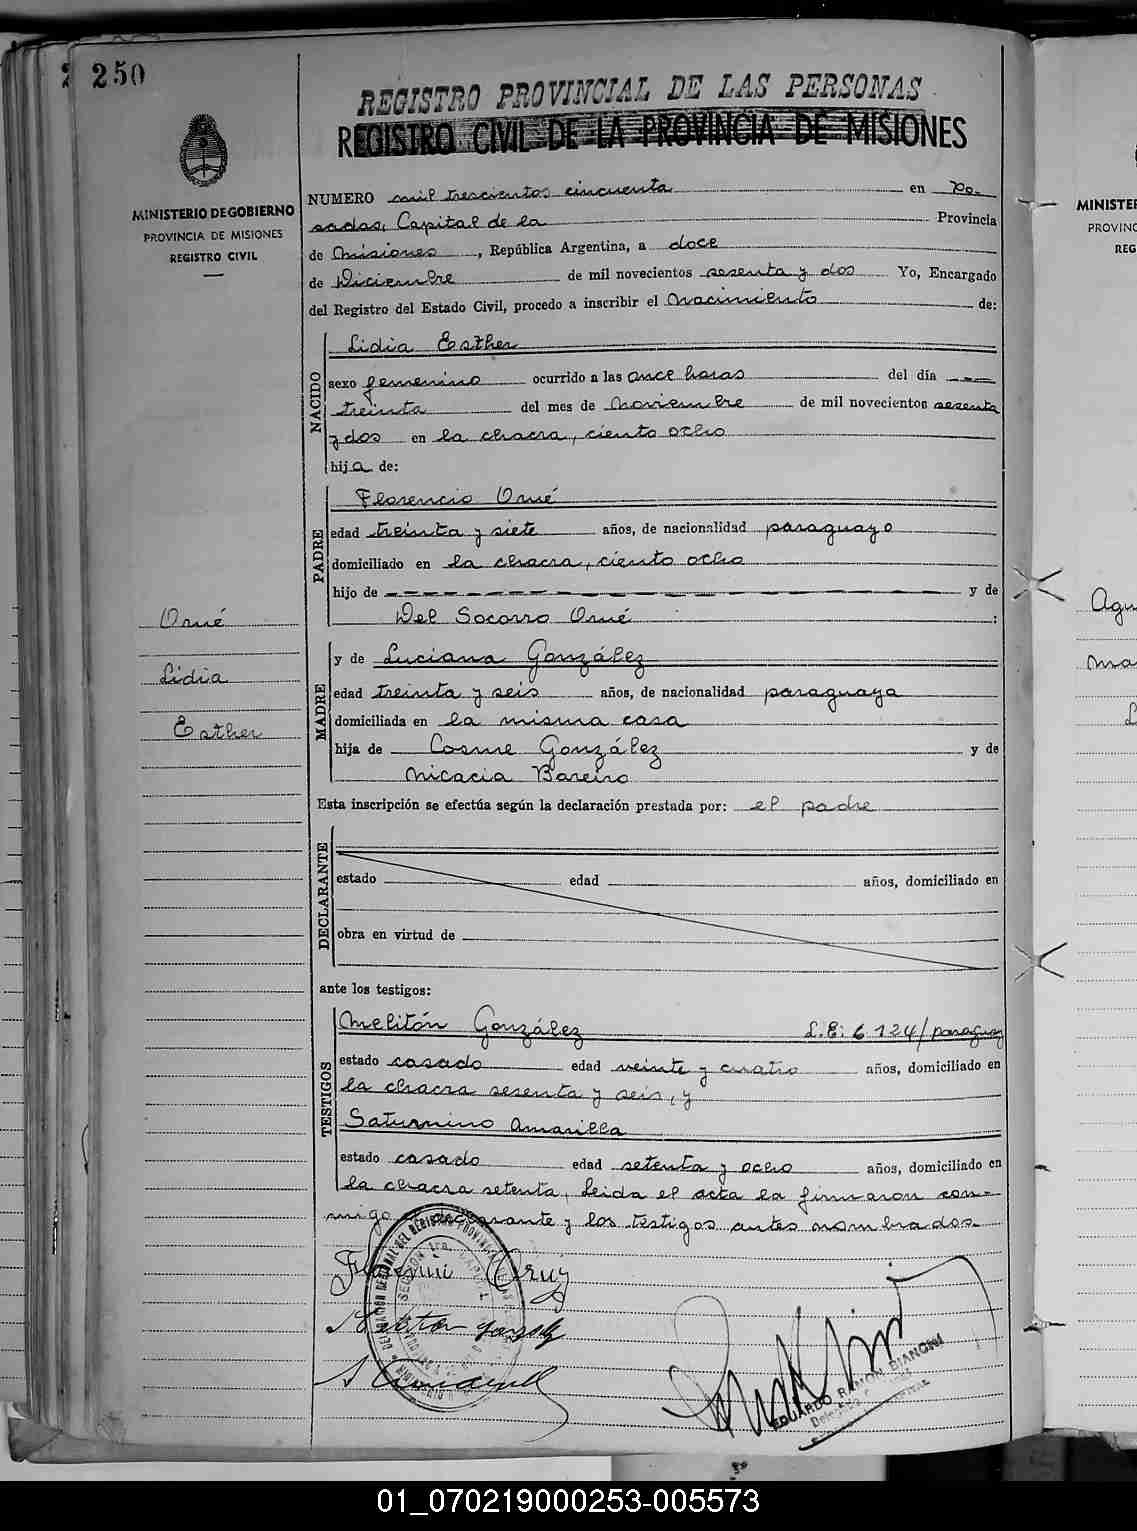 250
REGISTRO PROVINCIAL DE LAS PERSONAS
REGISTRO CIVIL DE LA PROVINCIA DE MISIONES
MINISTERIO DE GOBIERNO
PROVINCIA DE MISIONES
REGISTRO CIVIL
NUMERO mil trescientos cincuenta en Po-
sadas, Capital de la Provincia
de Misiones, República Argentina, a doce
de Diciembre de mil novecientos sesenta y dos Yo, Encargado
del Registro del Estado Civil, procedo a inscribir el Nacimiento de:
NACIDO
Lidia Esther
sexo femenino ocurrido a las once horas del día
treinta del mes de Noviembre de mil novecientos sesenta
y dos en la chacra, ciento ocho
hija de:
PADRE
Florencio Orué
edad treinta y siete años, de nacionalidad paraguayo
domiciliado en la chacra, ciento ocho
hijo de y de
Del Socorro Orué :
Orué
Lidia
Esther
MADRE
y de Luciana González
edad treinta y seis años, de nacionalidad paraguaya
domiciliada en la misma casa
hija de Cosme González y de
Nicacia Bareiro
Esta inscripción se efectúa según la declaración prestada por: el padre
DECLARANTE
estado edad años, domiciliado en
obra en virtud de
ante los testigos:
TESTIGOS
Melitón González L.E: 6.124/paraguay
estado casado edad veinte y cuatro años, domiciliado en
la chacra sesenta y seis, y
Saturnino Amarilla
estado casado edad setenta y ocho años, domiciliado en
la chacra setenta, Leida el acta la firmaron con-
migo y los testigos antes nombrados.
EDUARDO RAMON BIANCHI
MINISTER
PROVINC
REG
Agu
Ma
L
01_070219000253-005573